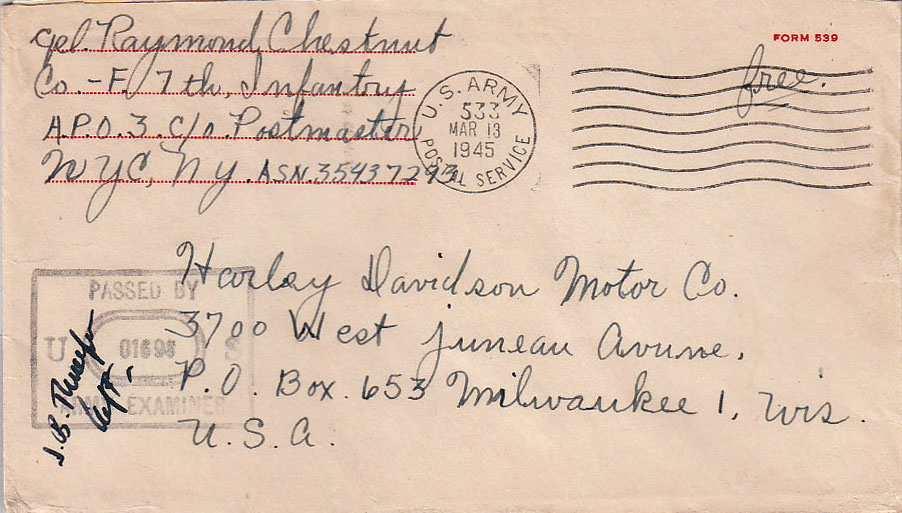 Cpl. Raymond Chestnut
Co.-F. 7th, Infantory
A.P.O. 3. c/o Postmaster
NYC, Ny. ASN.35437293
FORM 539
free.
U.S. ARMY
533
MAR 13
1945
POSTAL SERVICE
Harley Davidson Motor Co.
3700 West Juneau Avune,
P.O. Box. 653 Milwaukee 1, Wis.
U.S.A.
PASSED BY
U 01696 S
ARMY EXAMINER